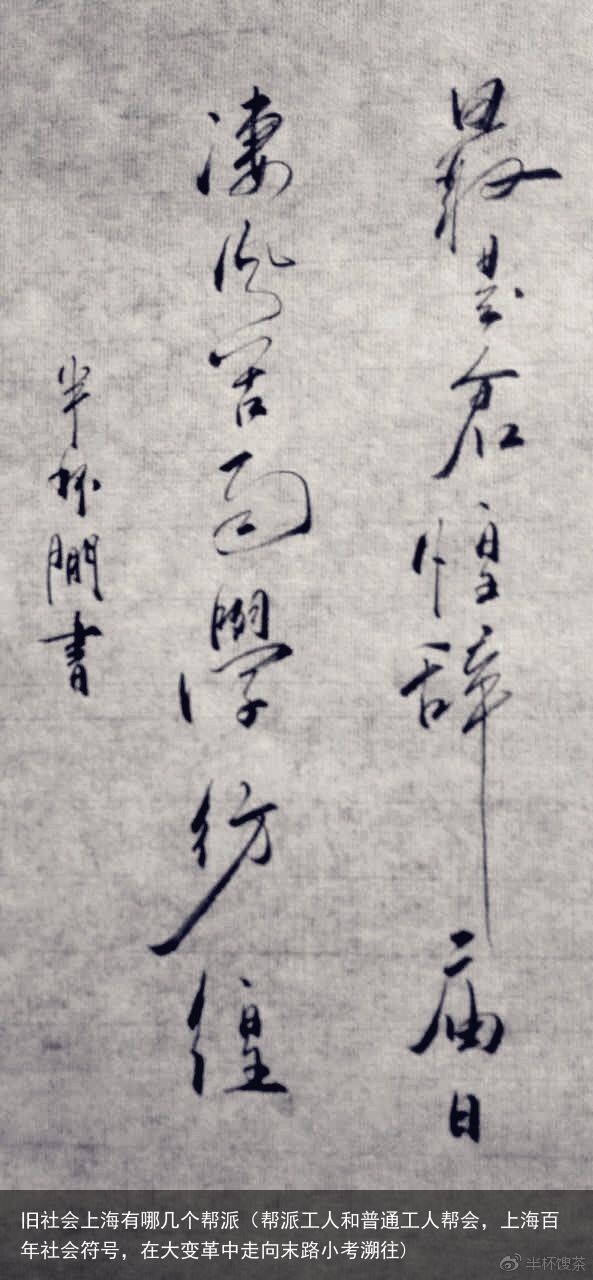 最是倉惶辞庙日
凄風苦雨學彷徨
半杯閒書
旧社会上海有哪几个帮派（帮派工人和普通工人帮会，上海百
年社会符号，在大变革中走向末路小考溯往）
半杯馊茶